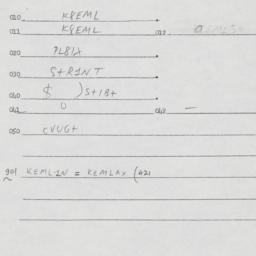 010 KREML
011 KREML 012
020 PLB1X
030 S+R1NT
040 $ )S+1B+
041 0 042 —
050 CVUG+
901 KEML1N = KEMLAX (421